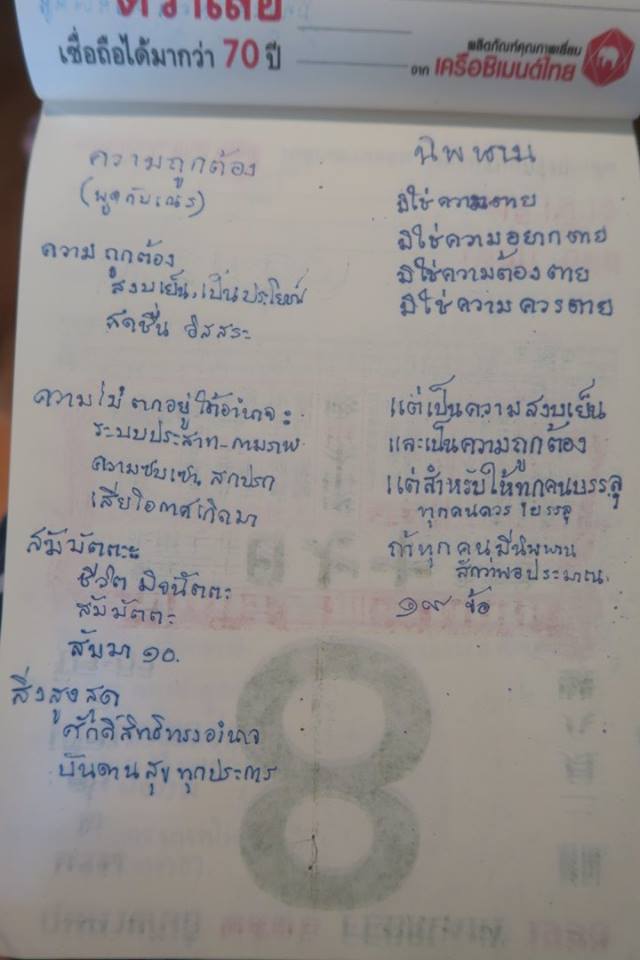 ตราเสือ
เชื่อถือได้มากว่า 70 ปี
ผลิตภัณฑ์คุณภาพเยี่ยม
จาก เครือซิเมนต์ไทย
ความถูกต้อง
(พูดกับเณร)
ความถูกต้อง
สงบเย็น, เป็นประโยชน์
สดชื่น อิสสระ
ความไม่ตกอยู่ใต้อำนาจ:
ระบบประสาท-กามภพ
ความซบเซา สกปรก
เสียโอกาสเกิดมา
สัมมัตตะ
ชีวิต มิจฉัตตะ
สัมมัตตะ
สัมมา ๑๐.
สิ่งสูงสุด
ศักดิ์สิทธิ์ทรงอำนาจ
บันดาลสุขทุกประการ
นิพพาน
มิใช่ความตาย
มิใช่ความอยากตาย
มิใช่ความต้องตาย
มิใช่ความควรตาย
แต่เป็นความสงบเย็น
และเป็นความถูกต้อง
แต่สำหรับให้ทุกคนบรรลุ
ทุกคนควรบรรลุ
ถ้าทุกคนมีนิพพาน
สักว่าพอประมาณ.
๑๙ ข้อ
8